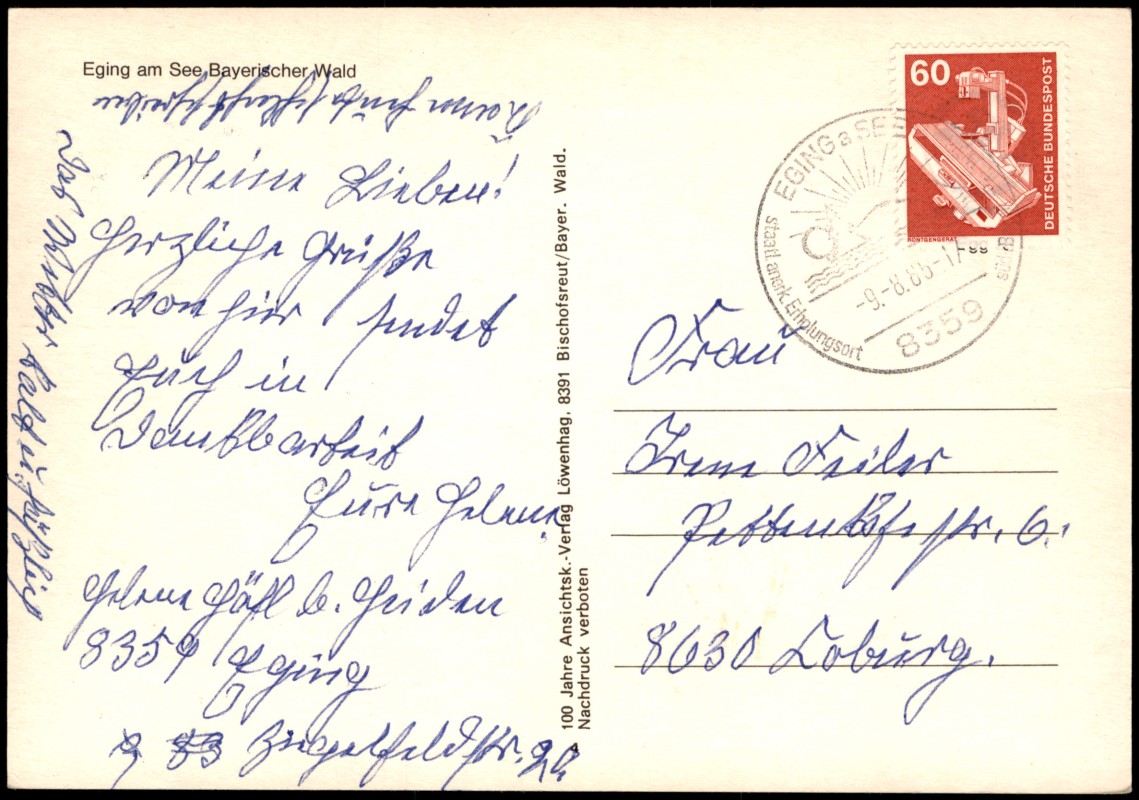 Eging am See Bayerischer Wald
Meine Lieben!
Herzliche Grüße
von hier sendet
Euch in
Dankbarkeit
Eure Helene
Helene Höfl b. Heiden
8359 Eging
Ziegelfeldstr.
100 Jahre Ansichtsk.-Verlag Löwenhag, 8391 Bischofsreut/Bayer. Wald.
Nachdruck verboten
60
DEUTSCHE BUNDESPOST
RÖNTGENGERÄT
EGING a SEE
staatl. anerk. Erholungsort
8359
Frau
Irene Feiler
6.
8630 Coburg.